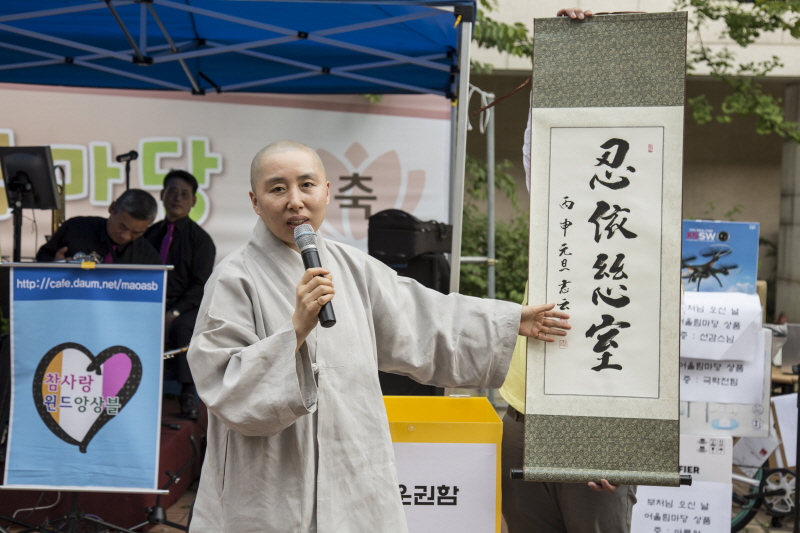 마당
축
http://cafe.daum.net/maoasb
참사랑
윈드앙상블
忍依慈室
丙申元旦
SSW
부처님 오신 날
어울림마당 상품
중 : 선감스님
어울림마당 상품
중 : 극락전팀
FIER
부처님 오신 날
어울림마당 상품
권함